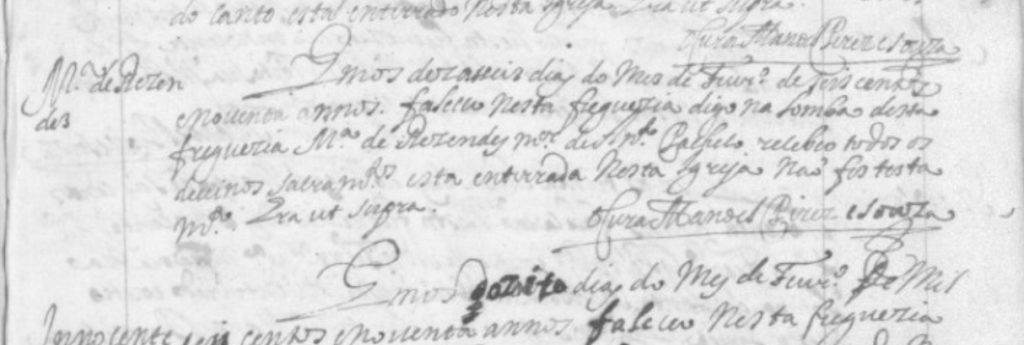 do Canto está entirrado Nesta Igreja Era ut supra.
O Cura Manoel Pirez e Souza
Mª de Rezen
des
Emos dezaseis dias do Mes de Fevrº de seis centos
e noventa annos. faleceu Nesta freguezia digo na Lomba desta
freguezia Mª de Rezendes mer de Antº Pacheco recebeo todos os
devinos sacramtos está entirrada Nesta Igreja Não fes testa
mto Era ut supra.
O Cura Manoel Pirez e Souza
Emos dozito dias do Mes de Fevrº De Mil
Innocente seis centos e noventa annos. faleceu Nesta freguezia